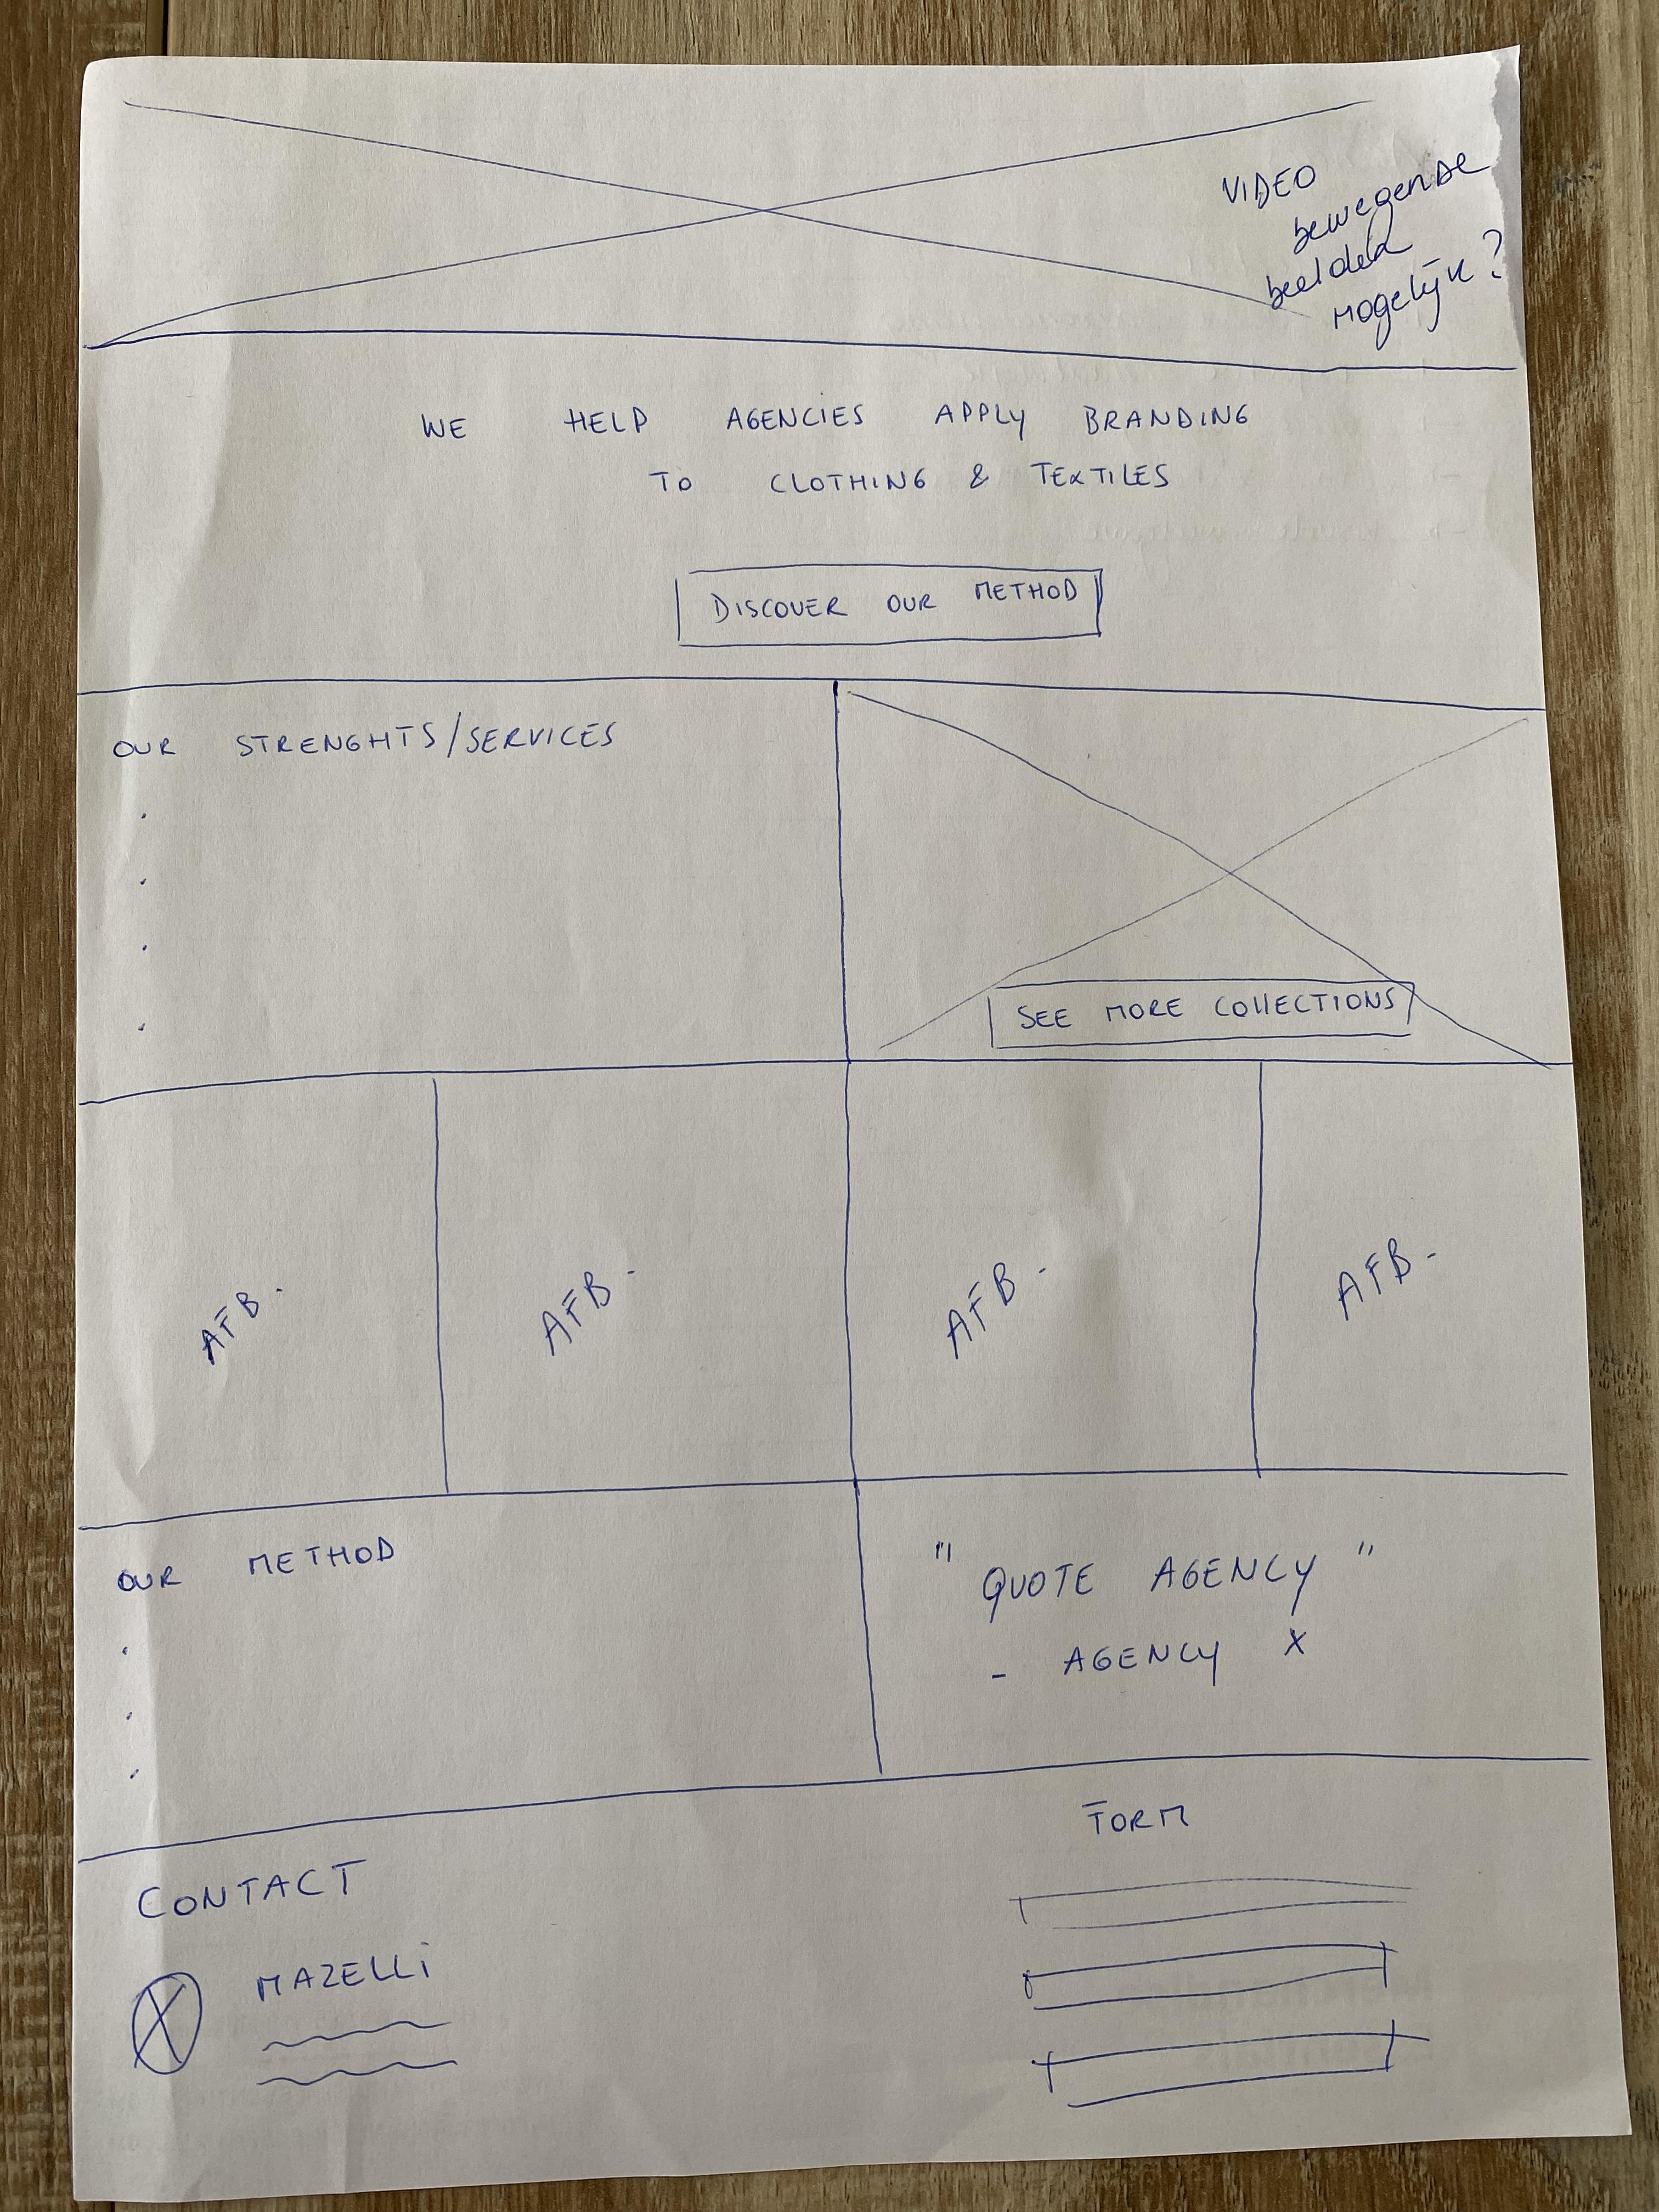 VIDEO
bewegende
beelden
mogelijk?
WE HELP AGENCIES APPLY BRANDING
TO CLOTHING & TEXTILES
DISCOVER OUR METHOD
OUR STRENGHTS/SERVICES
SEE MORE COLLECTIONS
AFB.
AFB.
AFB.
AFB.
OUR METHOD
"QUOTE AGENCY"
- AGENCY X
CONTACT
MAZELLi
FORM